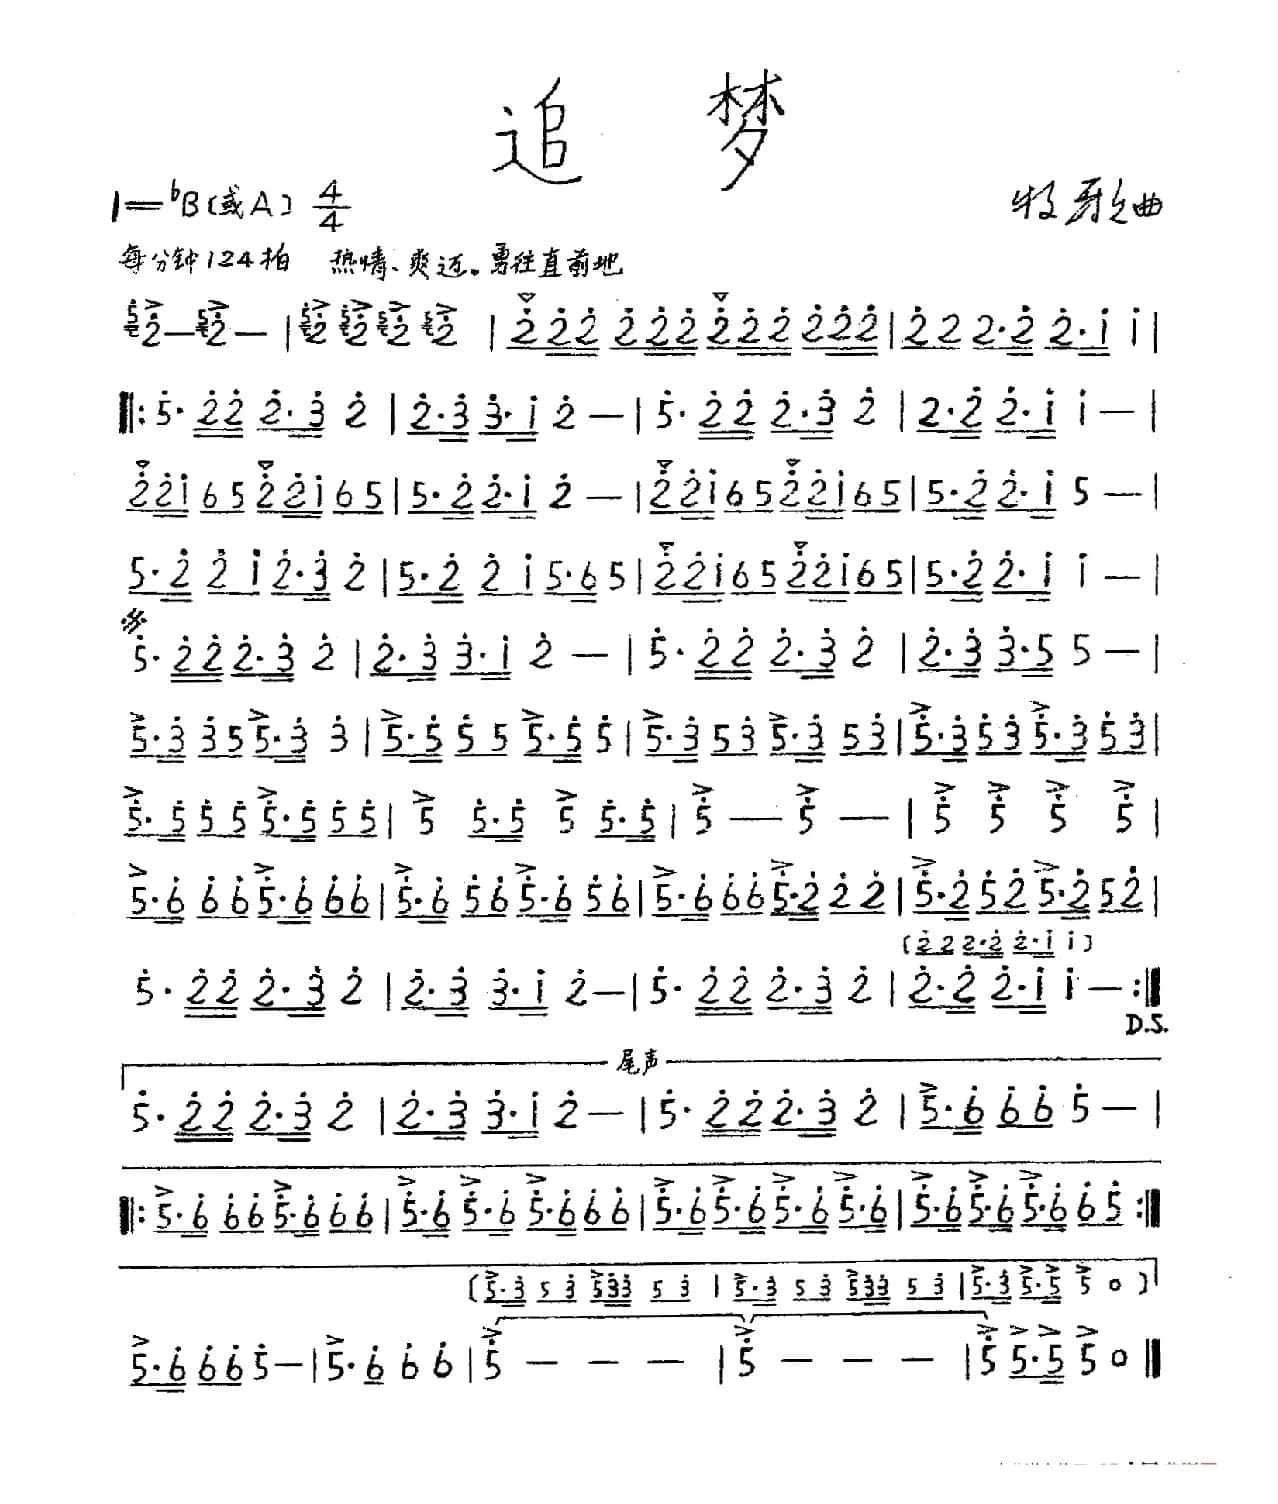 追 梦
1=♭B(或A) 4/4
牧歌曲
每分钟124拍 热情、爽迈。勇往直前地
5 2 — 5 2 — | 5 2 5 2 5 2 5 2 | 2 2 2 2 2 2 2 2 2 2 2 2 | 2 2 2· 2 2· 1 1 |
‖: 5· 2 2 2· 3 2 | 2· 3 3· 1 2 — | 5· 2 2 2· 3 2 | 2· 2 2· 1 1 — |
2 2 1 6 5 2 2 1 6 5 | 5· 2 2· 1 2 — | 2 2 1 6 5 2 2 1 6 5 | 5· 2 2· 1 5 — |
5· 2 2 1 2· 3 2 | 5· 2 2 1 5· 6 5 | 2 2 1 6 5 2 2 1 6 5 | 5· 2 2· 1 1 — |
𝄋
5· 2 2 2· 3 2 | 2· 3 3· 1 2 — | 5· 2 2 2· 3 2 | 2· 3 3· 5 5 — |
5· 3 3 5 5· 3 3 | 5· 5 5 5 5· 5 5 | 5· 3 5 3 5· 3 5 3 | 5· 3 5 3 5· 3 5 3 |
5· 5 5 5 5· 5 5 5 | 5 5· 5 5 5· 5 | 5 — 5 — | 5 5 5 5 |
5· 6 6 6 5· 6 6 6 | 5· 6 5 6 5· 6 5 6 | 5· 6 6 6 5· 2 2 2 | 5· 2 5 2 5· 2 5 2 |
(2 2 2· 2 2· 1 1)
5· 2 2 2· 3 2 | 2· 3 3· 1 2 — | 5· 2 2 2· 3 2 | 2· 2 2· 1 1 — :‖
D.S.
尾声
5· 2 2 2· 3 2 | 2· 3 3· 1 2 — | 5· 2 2 2· 3 2 | 5· 6 6 6 5 — |
‖: 5· 6 6 6 5· 6 6 6 | 5· 6 5· 6 5· 6 6 6 | 5· 6 5· 6 5· 6 5· 6 | 5· 6 5· 6 5· 6 6 5 :‖
(5· 3 5 3 5 3 3 5 3 | 5· 3 5 3 5 3 3 5 3 | 5· 3 5· 5 5 0)
5· 6 6 6 5 — | 5· 6 6 6 | 5 — — — | 5 — — — | 5 5· 5 5 0 ‖